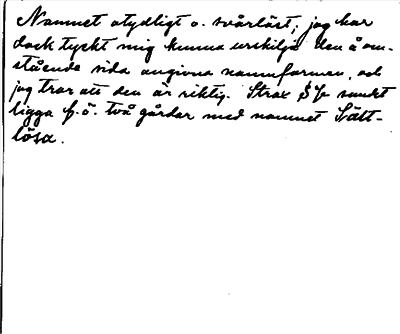 Namnet otydligt o. svårläst; jag har
dock tyckt mig kunna urskilja den å om-
stående sida angivna namnformen, och
jag tror att den är riktig. Strax S
ligga f.ö. två gårdar med namnet Sätt-
lösa.